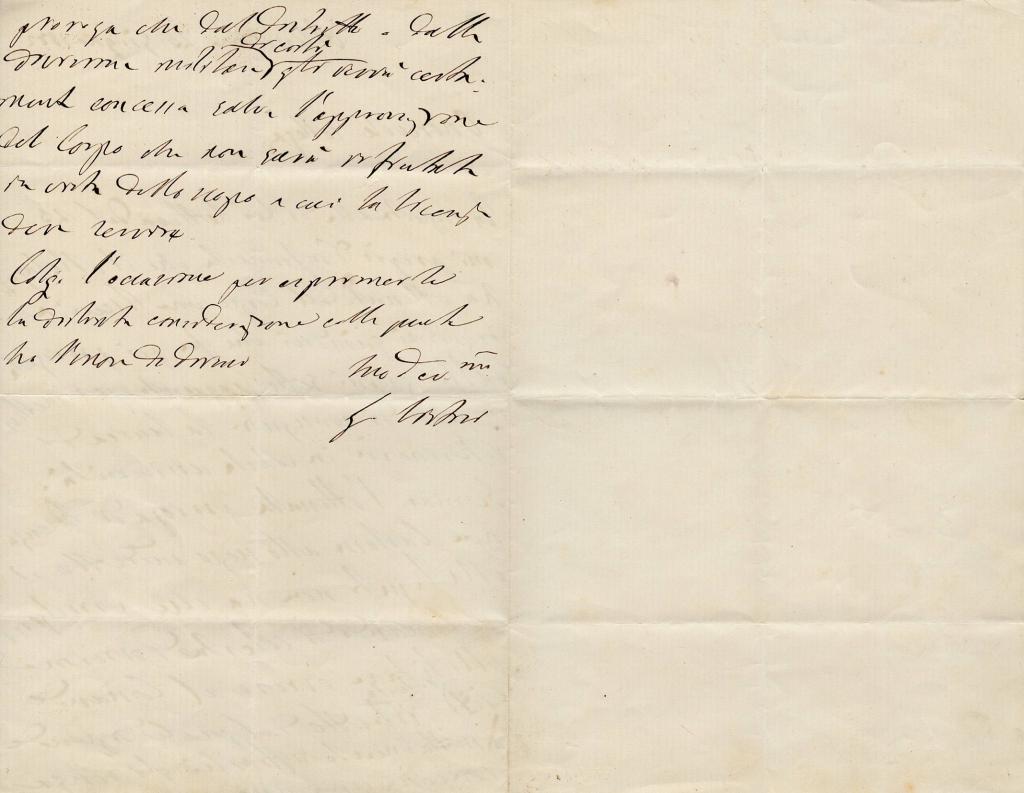 proroga che dal distretto o dalla
divisione militare di costì gli verrà certa-
mente concessa salva l'approvazione
del Corpo che non sarà rifiutata
in vista dello scopo a cui la licenza
deve servire
Colgo l'occasione per esprimerle
la distinta considerazione colla quale
ho l'onore di dirmi
Suo dev.mo